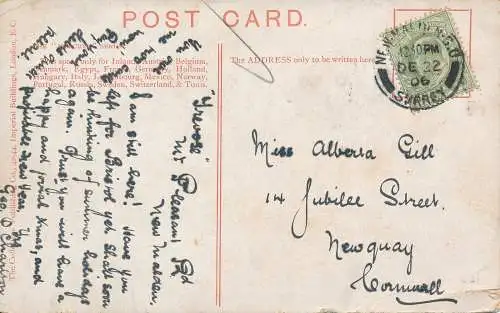 POST CARD.
The ADDRESS only to be written here
NEW MALDEN
10.30PM
DE 22
06
SURREY
Miss Alberta Gill
14 Jubilee Street
Newquay
Cornwall
"Trevose"
Mt Pleasant Rd
New Malden,
I am still here! Have you
left for Bristol yet shall soon
be thinking of summer holidays
again. Trust you will have a
happy and jovial Xmas, and
New Year
Belgium,
Denmark, Egypt, France, Germany, Holland,
Hungary, Italy, Luxembourg, Mexico, Norway,
Portugal, Russia, Sweden, Switzerland, & Tunis.
Imperial Buildings, London, E.C.